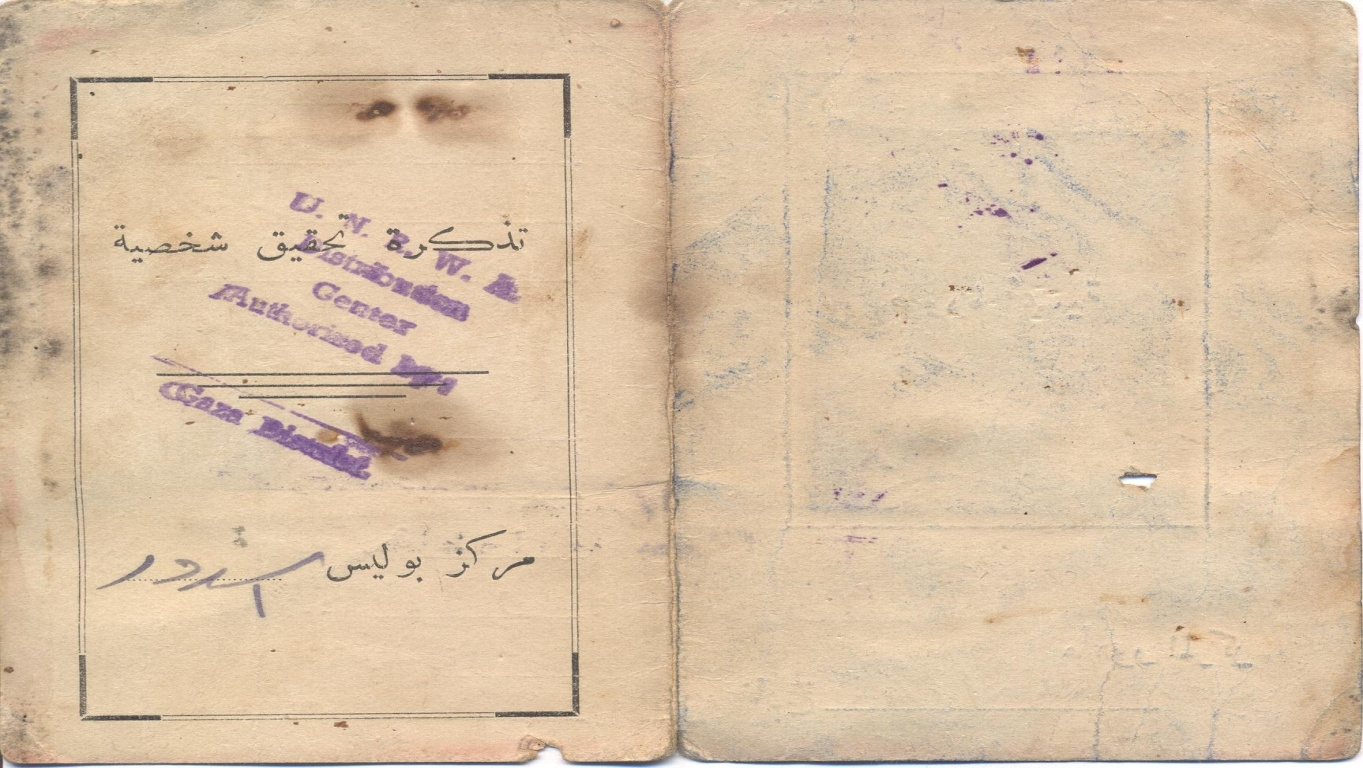 تذكرة تحقيق شخصية
U. N. R. W. A.
Distribution
Center
Authorized by
Gaza District.
مركز بوليس اسدود